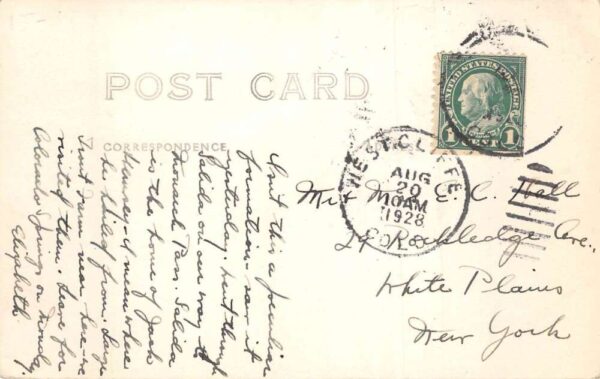 POST CARD
CORRESPONDENCE
UNITED STATES POSTAGE
1 CENT 1
WESTCLIFFE
AUG
20
10AM
1928
COLO.
Isn't this a peculiar
formation - saw it
yesterday. Went through
Salida on our way to
Monarch Pass. Salida
is the home of Jack
Dempsey I mean where
he hailed from. Large
trout farm near here we
visited them. Leave for
Colorado Springs on Monday
Elizabeth.
Mr & Mrs. E. C. Hall
29 Rockledge Ave.,
White Plains
New York